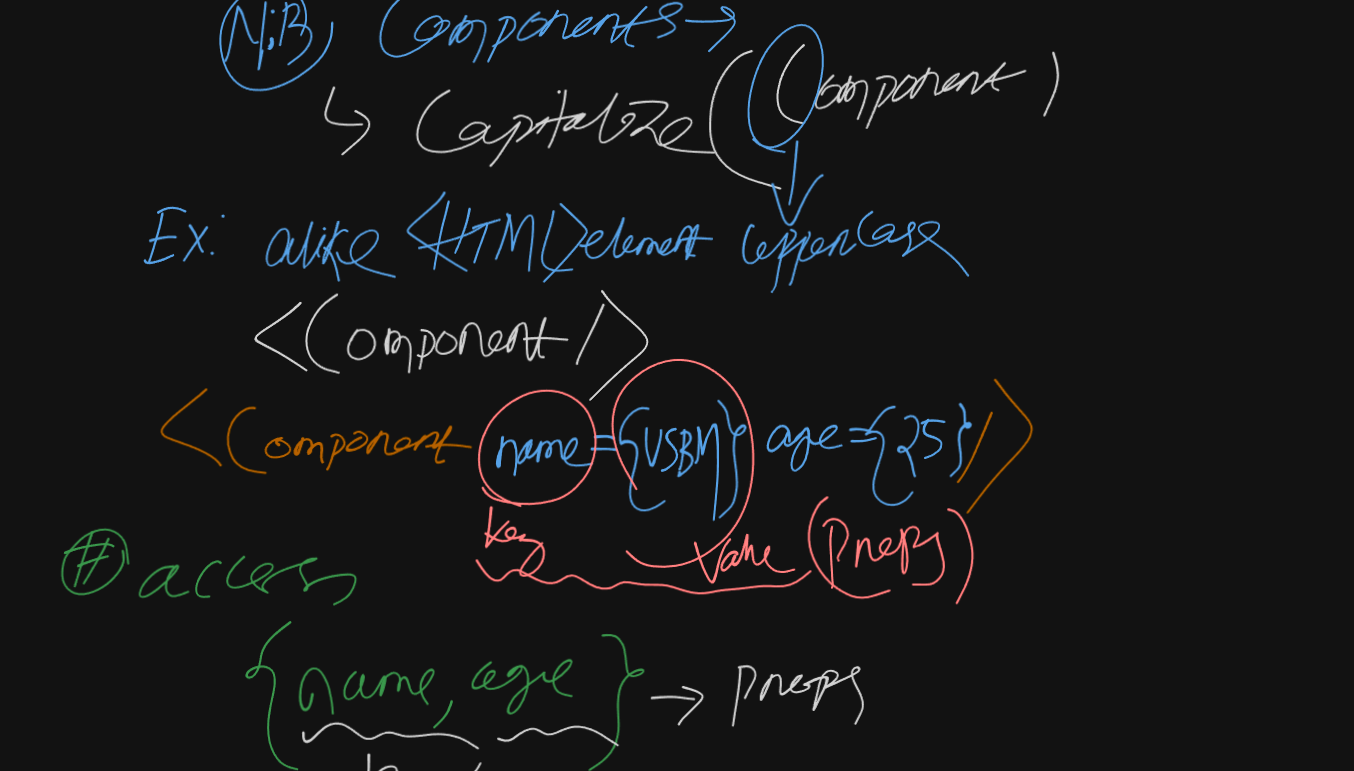 N:B Components →
↳ Capitalize (Component)
Ex: alike <HTML> element uppercase
<Component/>
<Component name={USBM} age={25}/>
key value (Props)
# access
{name, age} → props